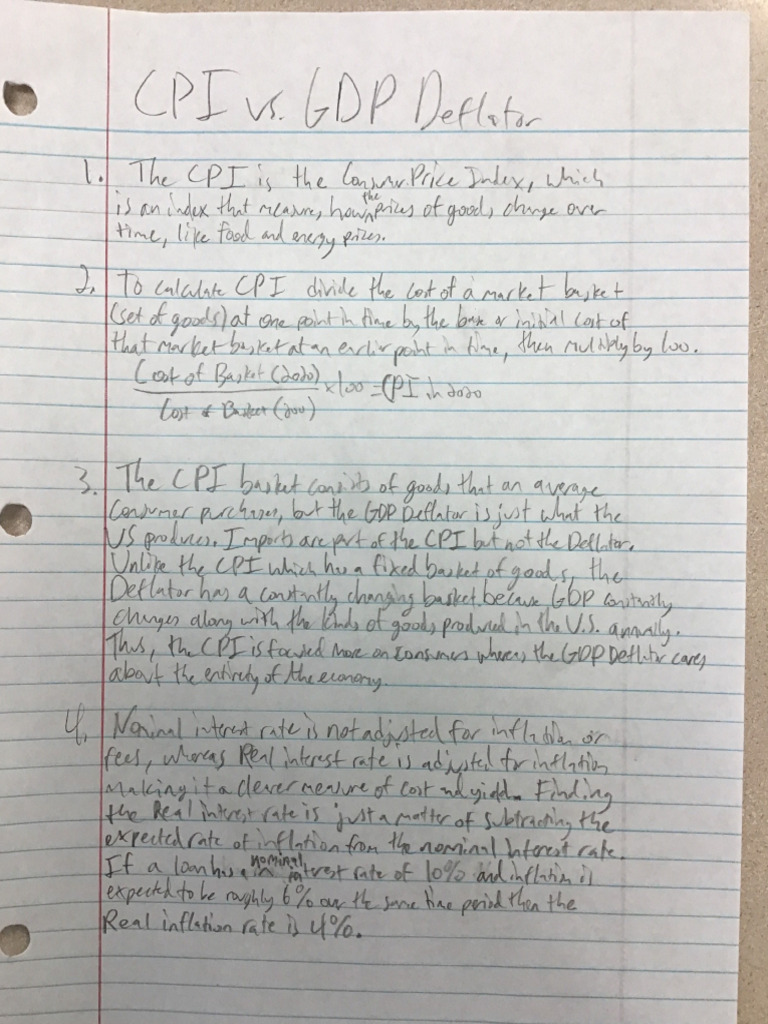 CPI vs. GDP Deflator
1. The CPI is the Consumer Price Index, which
is an index that measures how the prices of goods change over
time, like food and energy prices.
2. To calculate CPI divide the cost of a market basket
(set of goods) at one point in time by the base or initial cost of
that market basket at an earlier point in time, then multiply by 100.
Cost of Basket (2020) x 100 = CPI in 2020
Cost of Basket (200)
3. The CPI basket consists of goods that an average
Consumer purchases, but the GDP Deflator is just what the
US produces. Imports are part of the CPI but not the Deflator.
Unlike the CPI which has a fixed basket of goods, the
Deflator has a constantly changing basket because GDP constantly
changes along with the kinds of goods produced in the U.S. annually.
Thus, the CPI is focused more on consumers whereas the GDP Deflator cares
about the entirety of the economy.
4. Nominal interest rate is not adjusted for inflation or
fees, whereas Real interest rate is adjusted for inflation
making it a clever measure of cost and yield. Finding
the Real interest rate is just a matter of subtracting the
expected rate of inflation from the nominal interest rate.
If a loan has a nominal interest rate of 10% and inflation is
expected to be roughly 6% over the same time period then the
Real inflation rate is 4%.